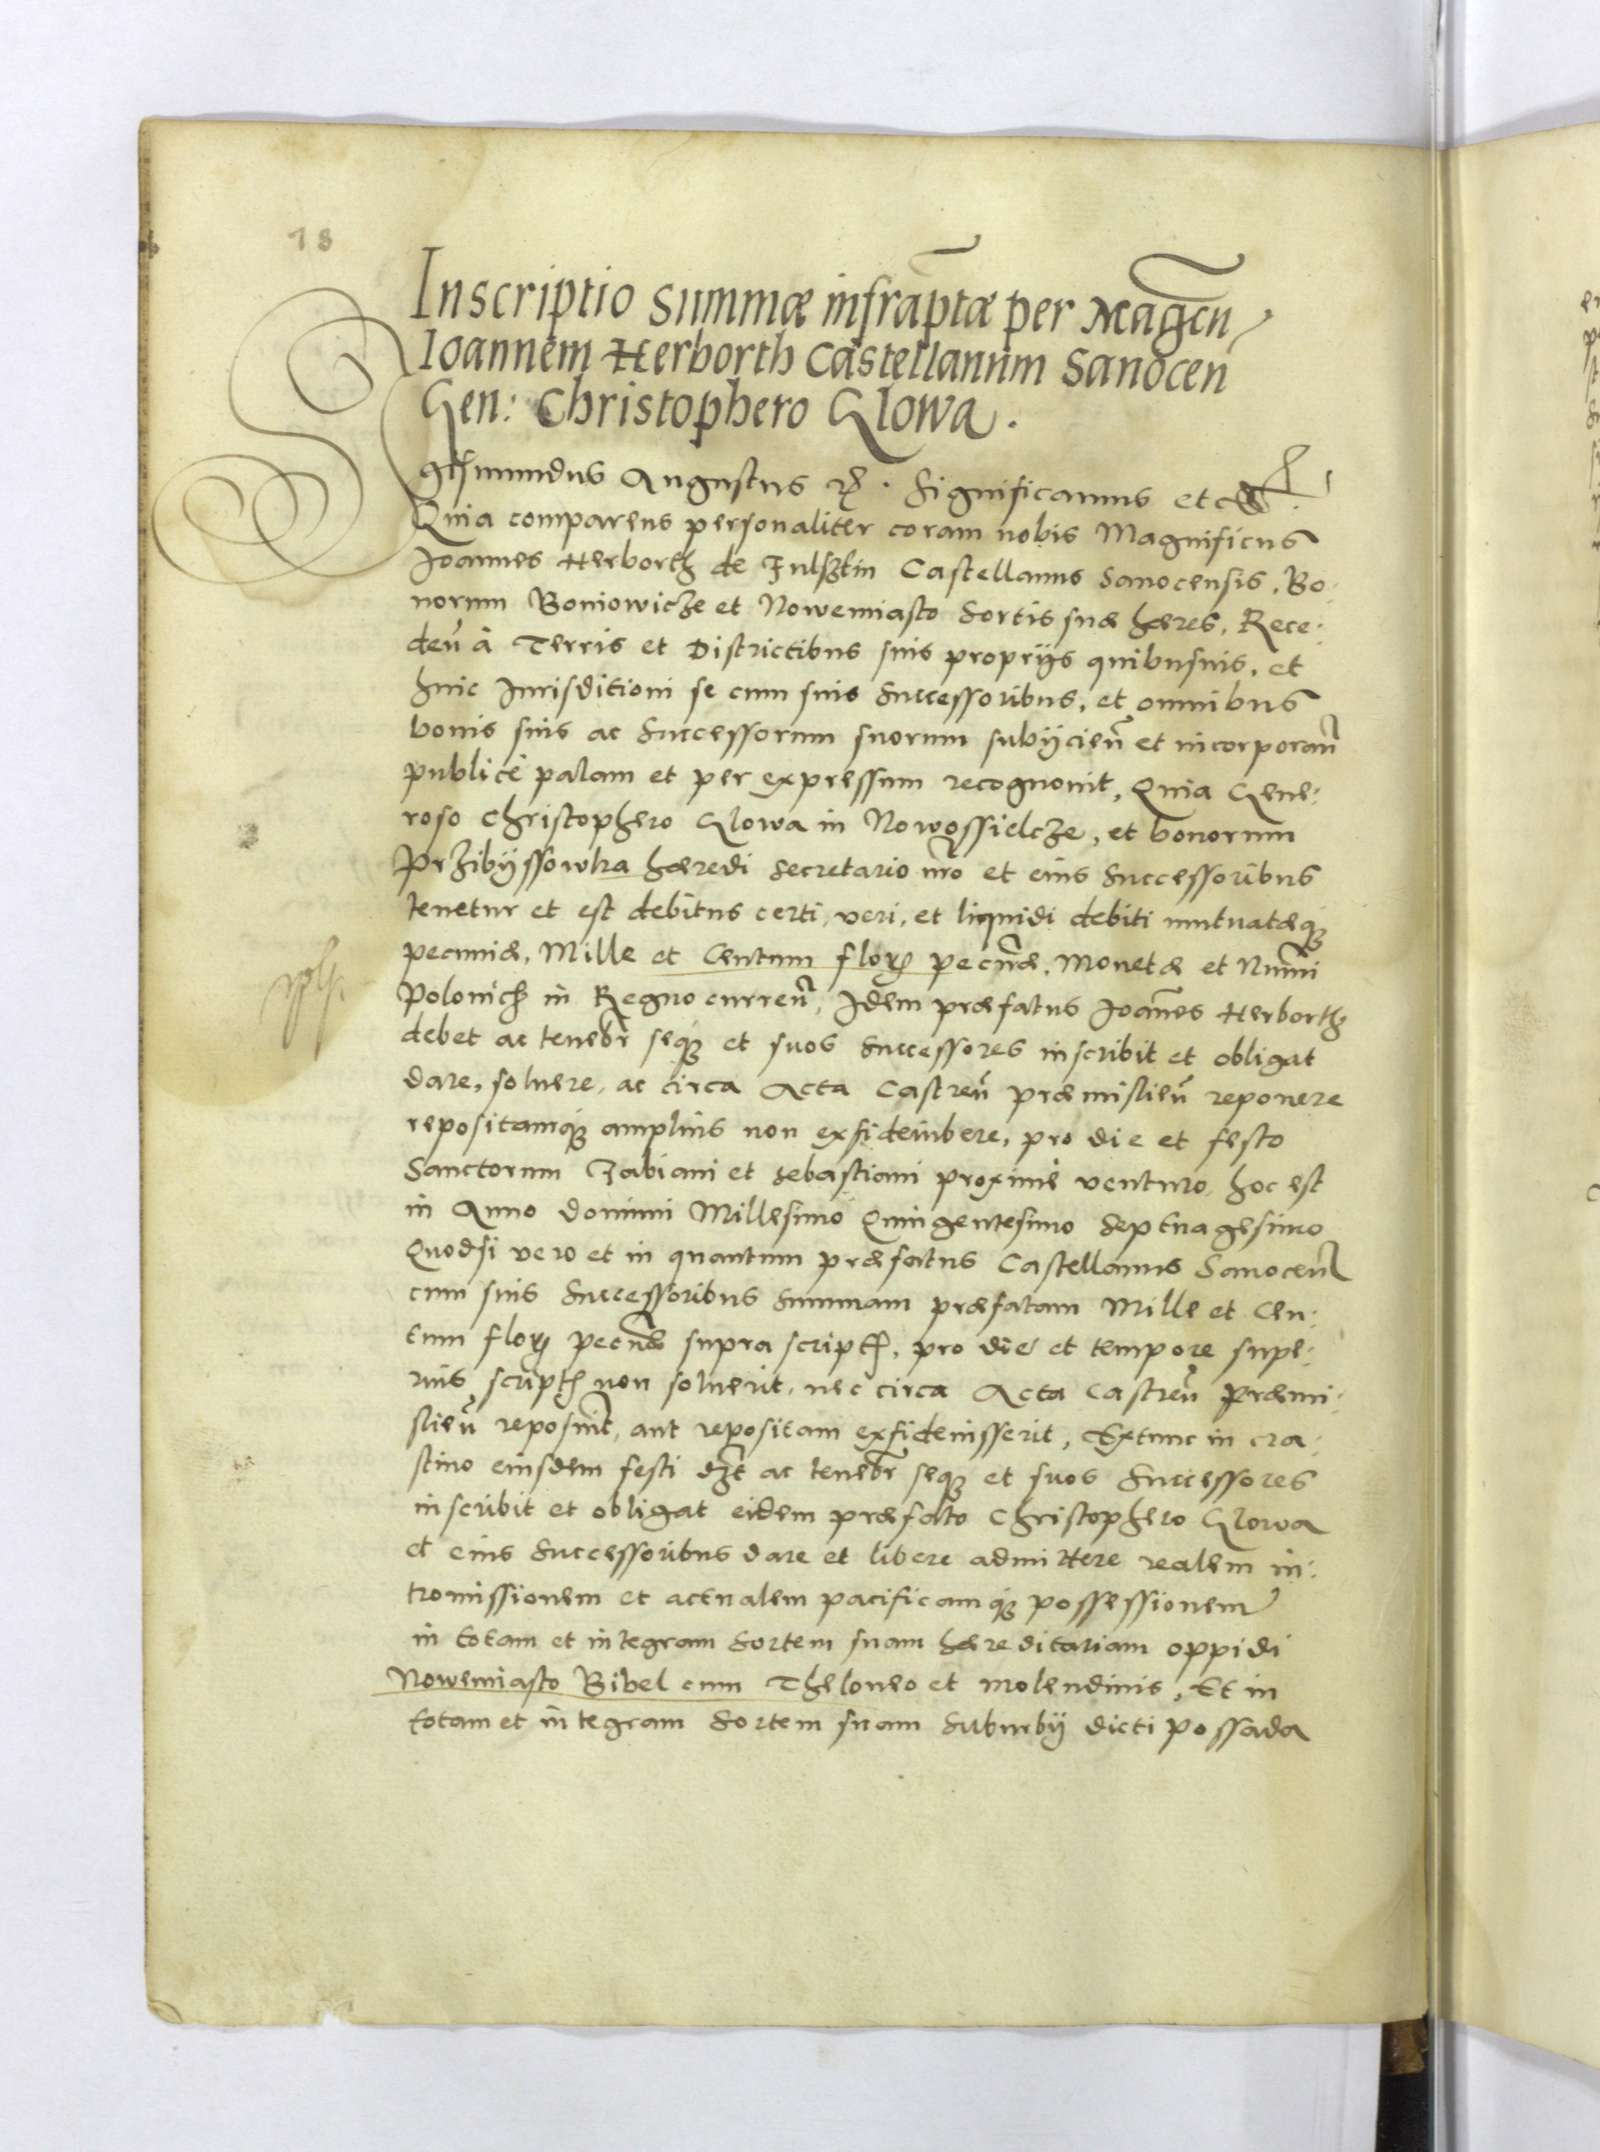 18
Inscriptio Summæ infraptæ per Magcn
Ioannem Herborth Castellanum Sanocen
Gen: Christophero Glowa.
Sigismundus Augustus Rx. Significamus etc
Quia comparens personaliter coram nobis Magnificus
Joannes Herborth de Fulsztin Castellanus Sanocensis, Bo-
norum Boniowicze et Nowemiasto Sortis suæ hæres, Rece:
den à Terris et Districtibus suis proprijs quibusuis, et
huic Jurisditioni se cum suis Successoribus, et omnibus
bonis suis ac Successorum suorum subijcien et incorporan
publicè palam et per expressum recognouit, Quia Gene:
roso Christophero Glowa in Nowossielcze, et bonorum
Przibyssowka hæredi Secretario nro et eius Successoribus
tenetur et est debitus certi, veri, et liquidi debiti mutuatæq
pecuniæ, Mille et Centum flor pecuniæ, Monetæ et Numi
Polonich in Regno curren, Idem præfatus Joannes Herborth
debet ac tenebr seq et suos Successores inscribit et obligat
dare, soluere, ac circa Acta Castren Præmislien reponere
repositamq amplius non exfideiubere, pro die et festo
Sanctorum Fabiani et Sebastiani proximè venturo, hoc est
in Anno Domini Millesimo Quingentesimo Septuagesimo
Quodsi vero et in quantum præfatus Castellanus Sanocen
cum suis Successoribus Summam præfatam Mille et Cen:
tum flor pecuniæ supra script, pro die et tempore supe:
rius script non soluerit, nec circa Acta Castren Præmi:
slien reposuit, aut repositam exfideiusserit, Extunc in cra:
stino eiusdem festi dzt ac tenebr seq et suos Successores
inscribit et obligat eidem præfato Christophero Glowa
et eius Successoribus dare et libere admittere realem in:
tromissionem et actualem pacificamq possessionem
in totam et integram Sortem suam hæreditariam oppidi
Nowemiasto Bibel cum Theloneo et molendinis, Et in
totam et integram Sortem suam Suburbij dicti Possada